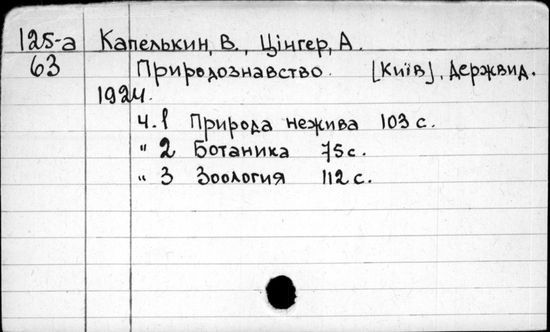 125-а Капелькин, В., Цінгер, А.
63 Природознавство. [Київ], Держвид.
1924.
ч. 1 Природа нежива 103 с.
" 2 Ботаника 75 с.
" 3 Зоология 112 с.